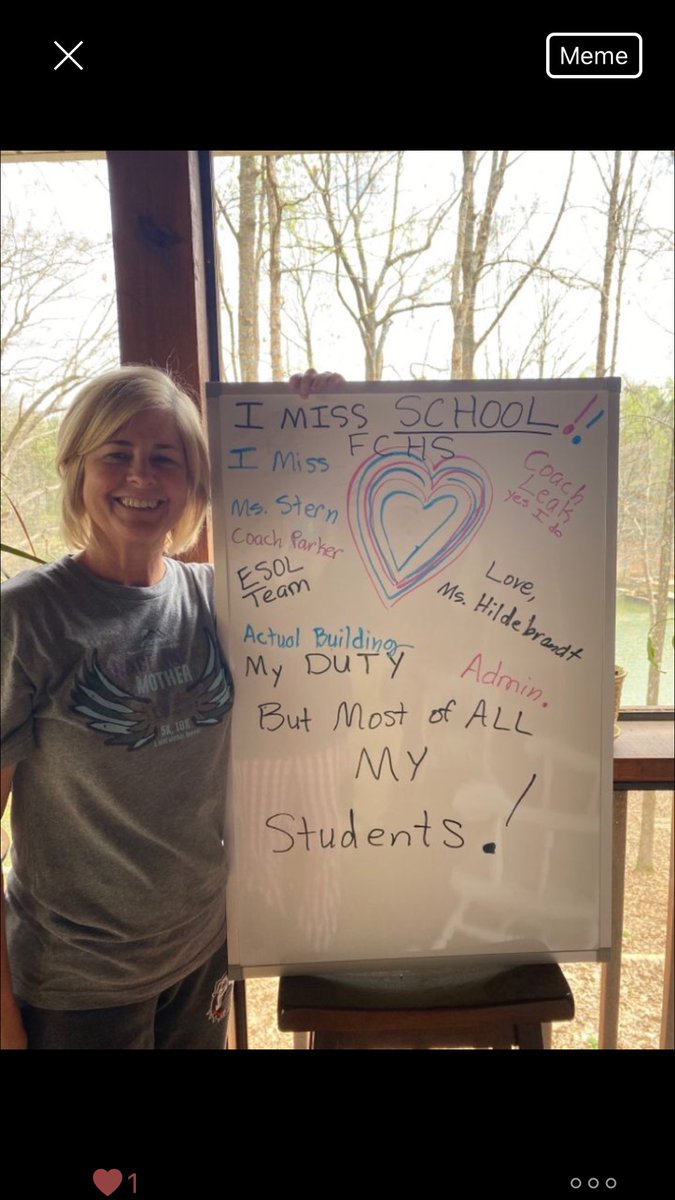 Meme
I MISS SCHOOL!!
FCHS
I Miss
Ms. Stern
Coach Parker
ESOL
Team
Coach
Leak
Yes I do
Love,
Ms. Hildebrandt
Actual Building
My DUTY
Admin.
But Most of ALL
MY
Students.!
MOTHER
5K, 10K
1